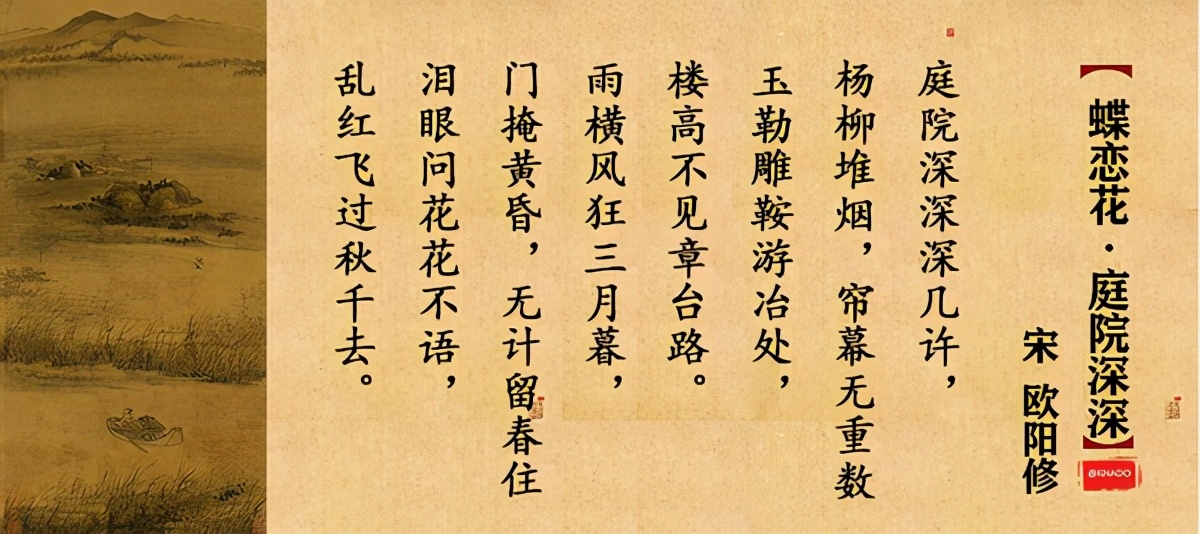 【蝶恋花·庭院深深】
宋 欧阳修
庭院深深深几许，
杨柳堆烟，帘幕无重数
玉勒雕鞍游冶处，
楼高不见章台路。
雨横风狂三月暮，
门掩黄昏，无计留春住
泪眼问花花不语，
乱红飞过秋千去。